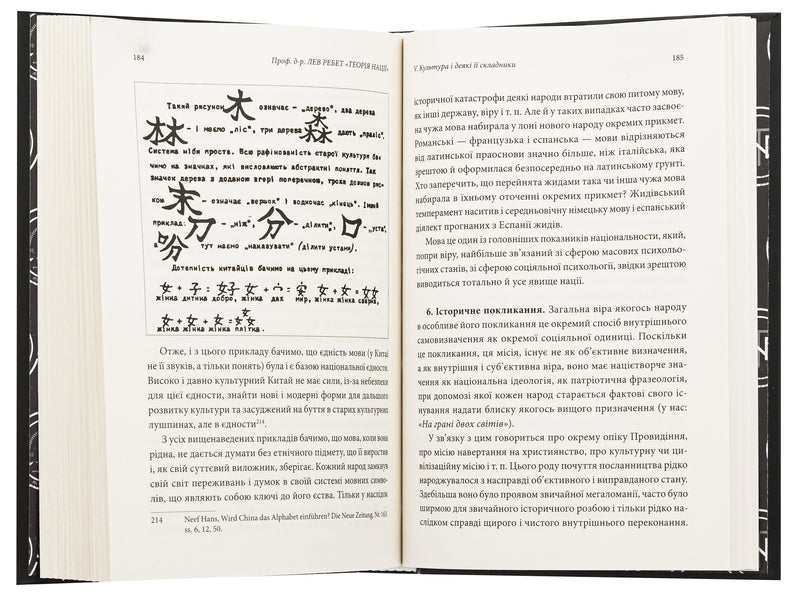 184
Проф. д-р. ЛЕВ РЕБЕТ «ТЕОРІЯ НАЦІЇ»
Такий рисунок 木 означає – „дерево", два дерева
林 – і маємо „ліс", три дерева 森 дають „праліс".
Система ніби проста. Всю рафінованість старої культури бач
чимо на значках, які висловляють абстрактні поняття. Так
значок дерева з доданою вгорі поперечною, трохи довшою рис-
кою 末 – означає „вершок" і водночас „кінець". Інший
приклад: 刀 – „ніж", 分 – „ділити", 口 – „уста",
а 吩 тут маємо „наказувати" (ділити устами).
Дотепність китайців бачимо на цьому прикладі:
女 + 子 = 好 女 + 宀 = 安 女 + 女 = 奻
жінка дитина добро, жінка дах мир, жінка жінка сварка,
女 + 女 + 女 = 姦
жінка жінка жінка плітка.
Отже, і з цього прикладу бачимо, що єдність мови (у Китаї
не її звуків, а тільки понять) була і є базою національної єдности.
Високо і давно культурний Китай не має сили, із-за небезпеки
для цієї єдности, знайти нові і модерні форми для дальшого
розвитку культури та засуджений на буття в старих культурних
лушпинах, але в єдности214.
З усіх вищенаведених прикладів бачимо, що мова, коли вона
рідна, не дається думати без етнічного підмету, що її виростив
і, як свій суттєвий виложник, зберігає. Кожний народ замкнув
свій світ переживань і думок в своїй системі мовних симво-
лів, що являють собою ключі до його єства. Тільки у наслідок
214 Neef Hans, Wird China das Alphabet einführen? Die Neue Zeitung, Nr. 163.
ss. 6, 12, 50.
V. Культура і деякі її складники
185
історичної катастрофи деякі народи втратили свою питому мову,
як інші державу, віру і т. п. Але й у таких випадках часто засвоє-
на чужа мова набирала у лоні нового народу окремих прикмет.
Романські — французька і еспанська — мови відрізняються
від латинської праоснови значно більше, ніж італійська, яка
зрештою й оформилася безпосередньо на латинському ґрунті.
Хто заперечить, що перейнята жидами така чи інша чужа мова
набирала в їхньому оточенні окремих прикмет? Жидівський
темперамент наситив і середньовічну німецьку мову і еспанський
діялект прогнаних з Еспанії жидів.
Мова це один із головніших показників национальности, який,
попри віру, найбільше зв'язаний зі сферою масових психольо-
гічних станів, зі сферою соціяльної психольогії, звідки зрештою
виводиться тотально й усе явище нації.
6. Історичне покликання. Загальна віра якогось народу
в особливе його покликання це окремий спосіб внутрішнього
самовизначення як окремої соціяльної одиниці. Поскільки
це покликання, ця місія, існує не як об'єктивне визначення,
а як внутрішня і суб'єктивна віра, воно має націєтворче зна-
чення як національна ідеологія, як патріотична фразеологія,
при допомозі якої кожен народ старається фактові свого іс-
нування надати блиску якогось вищого призначення (у нас:
«На грані двох світів»).
У зв'язку з цим говориться про окрему опіку Провидіння,
про місію навертання на християнство, про культурну чи ци-
вілізаційну місію і т. п. Цього роду почуття посланництва рідко
народжувалося з насправді об'єктивного і виправданого стану.
Здебільша воно було проявом звичайної мегаломанії, часто було
ширмою для звичайного історичного розбою і тільки рідко на-
слідком справді щирого і чистого внутрішнього переконання.